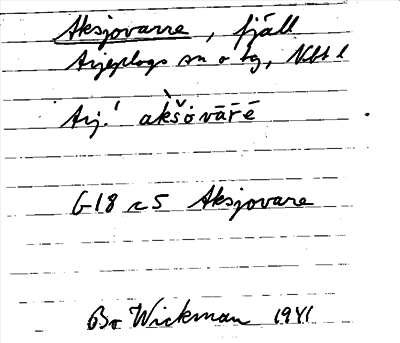 Aksjovarre, fjäll
Arjeplogs sn o tg, Nbt l
Arj.! akšòvārē
G18 c5 Aksjovare
Bo Wickman 1941